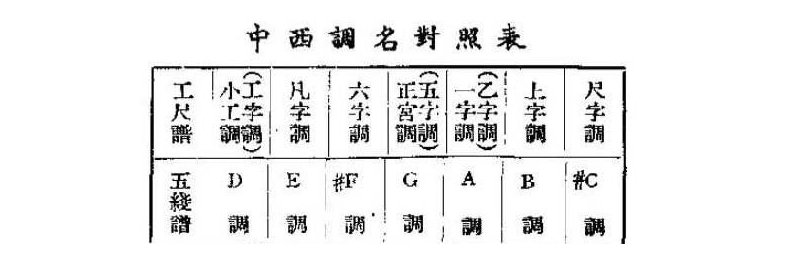 中西調名對照表
工尺譜 小工調(工字調) 凡字調 六字調 正宮調(五字調) 一字調(乙字調) 上字調 尺字調
五綫譜 D調 E調 #F調 G調 A調 B調 #C調